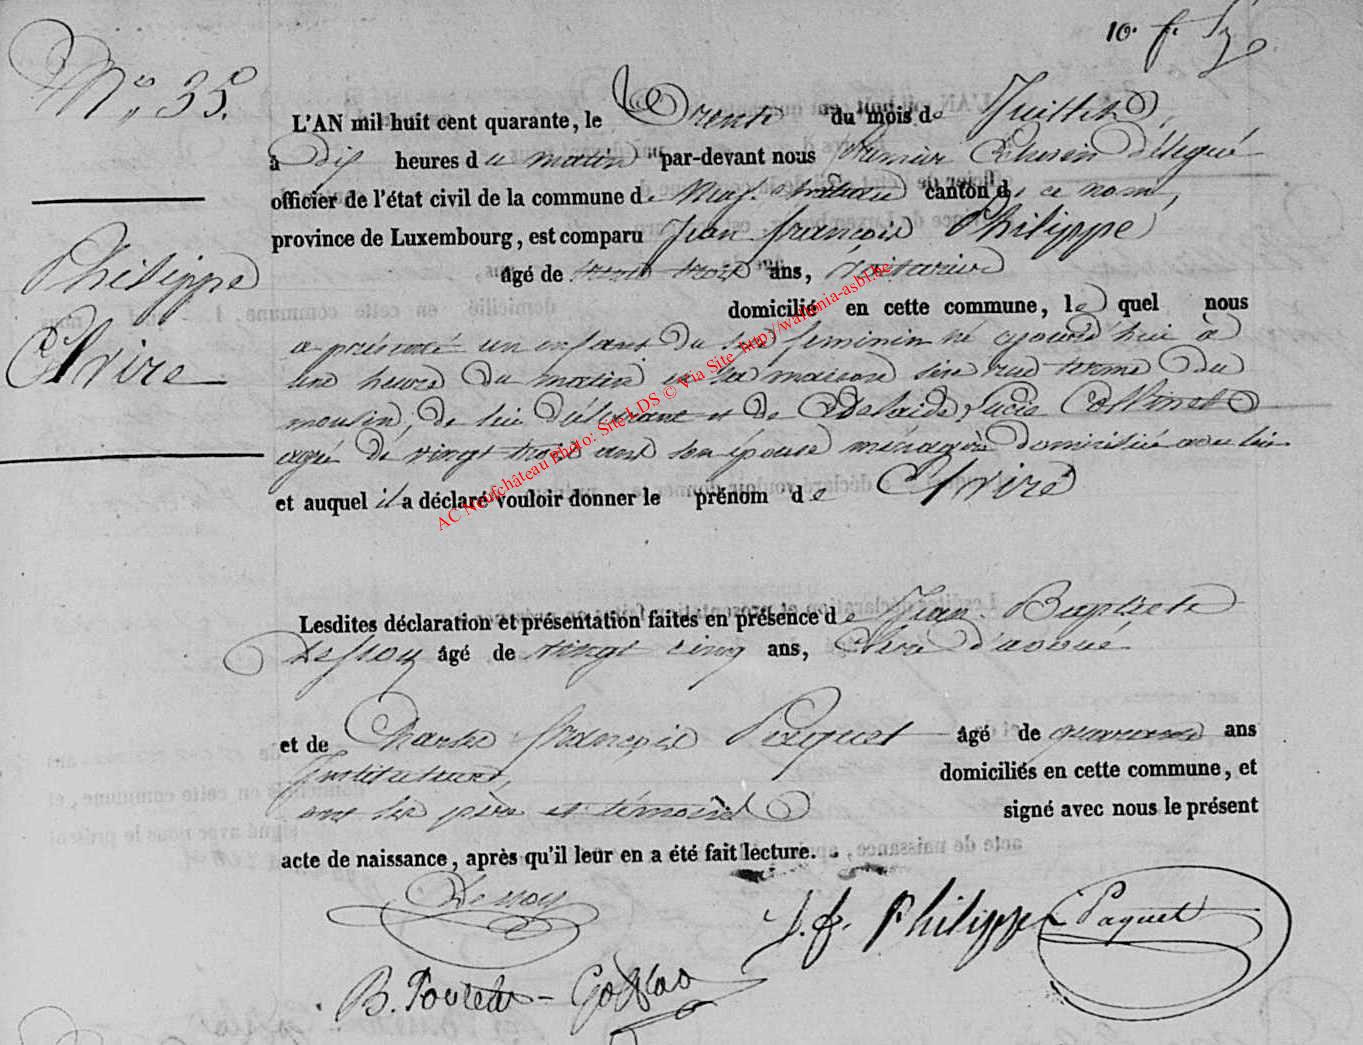 10. f.
N° 35.
L'AN mil huit cent quarante, le Trente du mois de Juillet,
à Dix heures du matin par-devant nous Premier Echevin délégué
officier de l'état civil de la commune de Neufchateau canton de ce nom,
province de Luxembourg, est comparu Jean françois Philippe
Philippe
âgé de trente trois ans, Notaire
domicilié en cette commune, le quel nous
Elvire
a présenté un enfant du sexe feminin né ajourd'hui à
une heure du matin en sa maison sise rue terme du
moulin, de lui déclarant et de Adelaide Lucie Collinet
agée de vingt trois ans son épouse ménagère domiciliée avec lui
et auquel il a déclaré vouloir donner le prénom de Elvire
AC Neufchâteau Photo: Site LDS © Via Site http://wallonia-asbl.be
Lesdites déclaration et présentation faites en présence de Jean Baptiste
Dessoy âgé de vingt cinq ans, Clerc d'avoué
et de Charles françois Paquet âgé de quarante ans
Instituteur, domiciliés en cette commune, et
ont les père et témoins signé avec nous le présent
acte de naissance, après qu'il leur en a été fait lecture.
Dessoy
J. f. Philippe Paquet
B. Poncelet - Gofflot